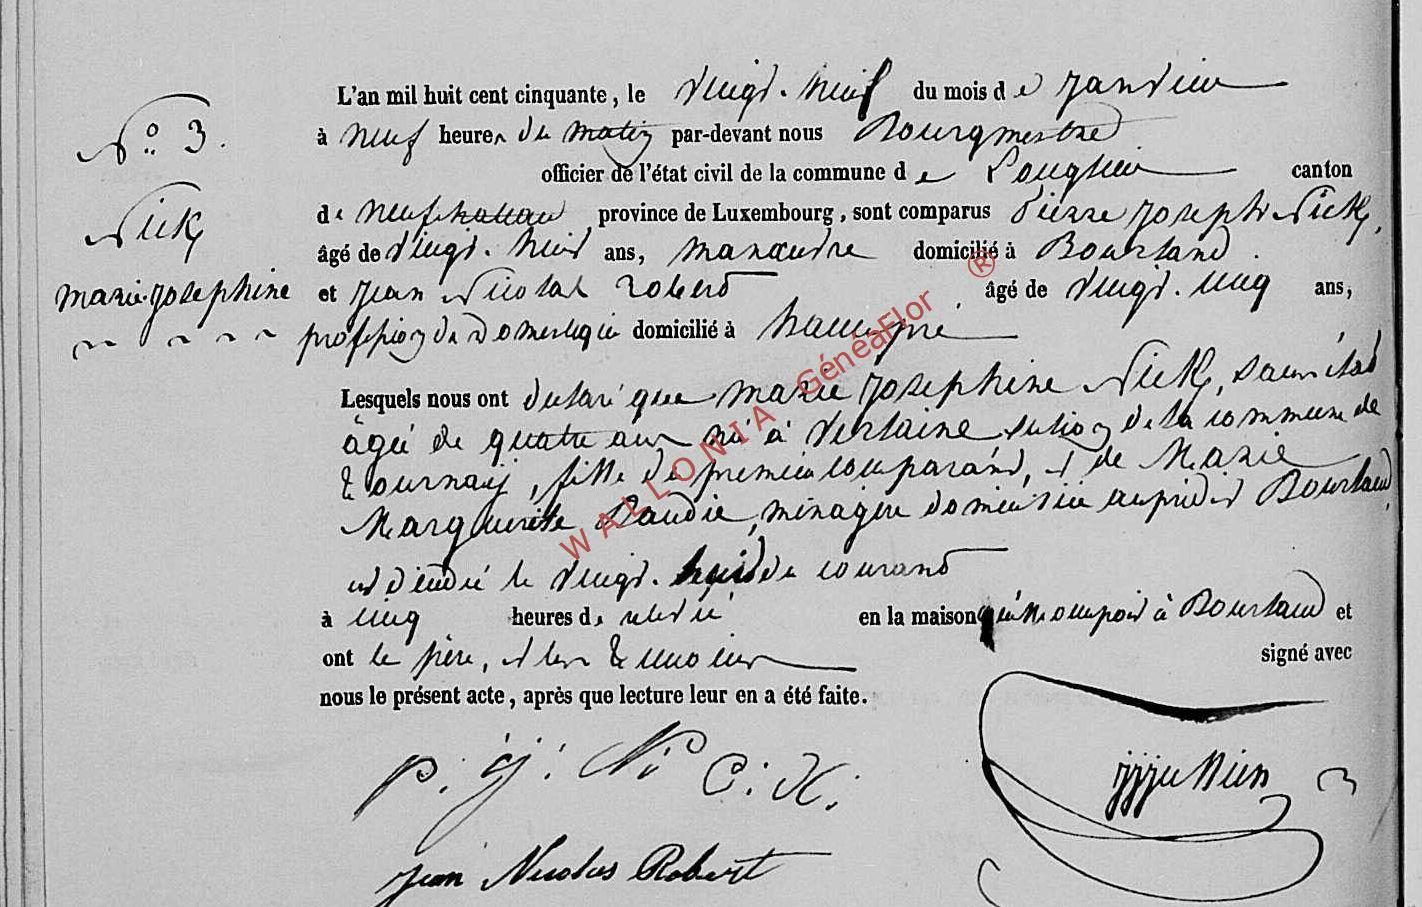 N° 3.
Nick
marie-Josephine
L'an mil huit cent cinquante, le vingt-neuf du mois de Janvier
à neuf heures du matin par-devant nous Bourgmestre
officier de l'état civil de la commune de Longlier canton
de neufchateau province de Luxembourg, sont comparus Pierre Joseph Nick,
âgé de vingt-neuf ans, manœuvre domicilié à Bourland
et Jean Nicolas robert âgé de vingt-cinq ans,
profession de domestique domicilié à hamipré
Lesquels nous ont déclaré que marie Josephine Nick, sans état
âgée de quatre ans né à verlaine section de la commune de
tournay, fille du premier comparant, et de Marie
Marguerite ménagère domiciliée au prédit Bourland,
est décédé le vingt- du courant
à cinq heures de relevée en la maison qu'elle occupoit à Bourland et
ont le père, et les témoins signé avec
nous le présent acte, après que lecture leur en a été faite.
p. j. Ni C. K.
Jean Nicolas Robert
WALLONIA GénéaFlor ®